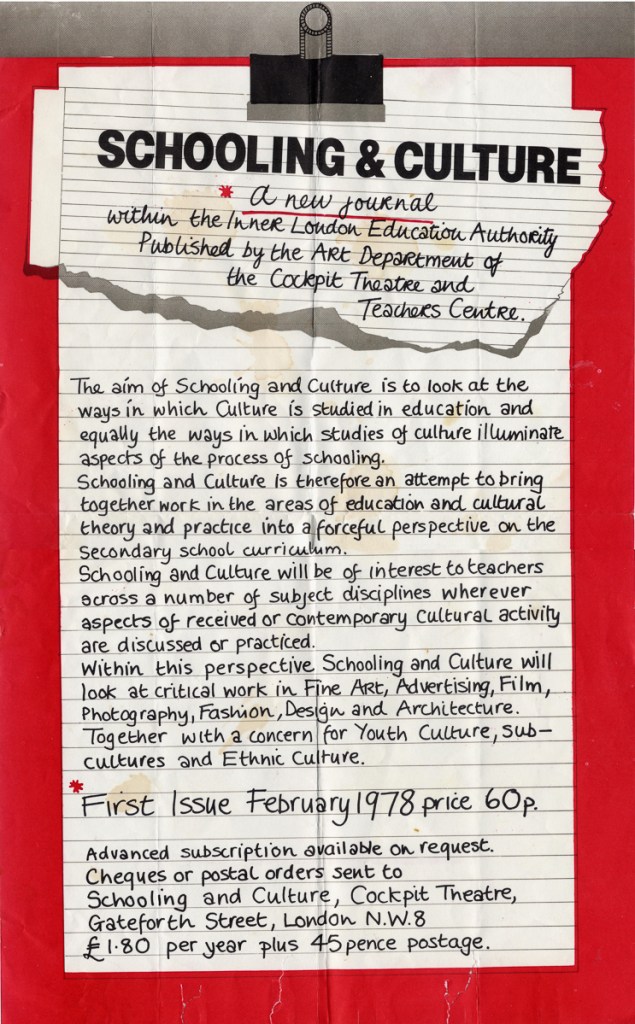 SCHOOLING & CULTURE
* a new journal
within the Inner London Education Authority
Published by the Art Department of
the Cockpit Theatre and
Teachers Centre.
The aim of Schooling and Culture is to look at the
ways in which Culture is studied in education and
equally the ways in which studies of culture illuminate
aspects of the process of schooling.
Schooling and Culture is therefore an attempt to bring
together work in the areas of education and cultural
theory and practice into a forceful perspective on the
secondary school curriculum.
Schooling and Culture will be of interest to teachers
across a number of subject disciplines wherever
aspects of received or contemporary cultural activity
are discussed or practiced.
Within this perspective Schooling and Culture will
look at critical work in Fine Art, Advertising, Film,
Photography, Fashion, Design and Architecture.
Together with a concern for Youth Culture, Sub-
cultures and Ethnic Culture.
* First Issue February 1978 price 60p.
Advanced subscription available on request.
Cheques or postal orders sent to
Schooling and Culture, Cockpit Theatre,
Gateforth Street, London N.W.8
£1·80 per year plus 45 pence postage.